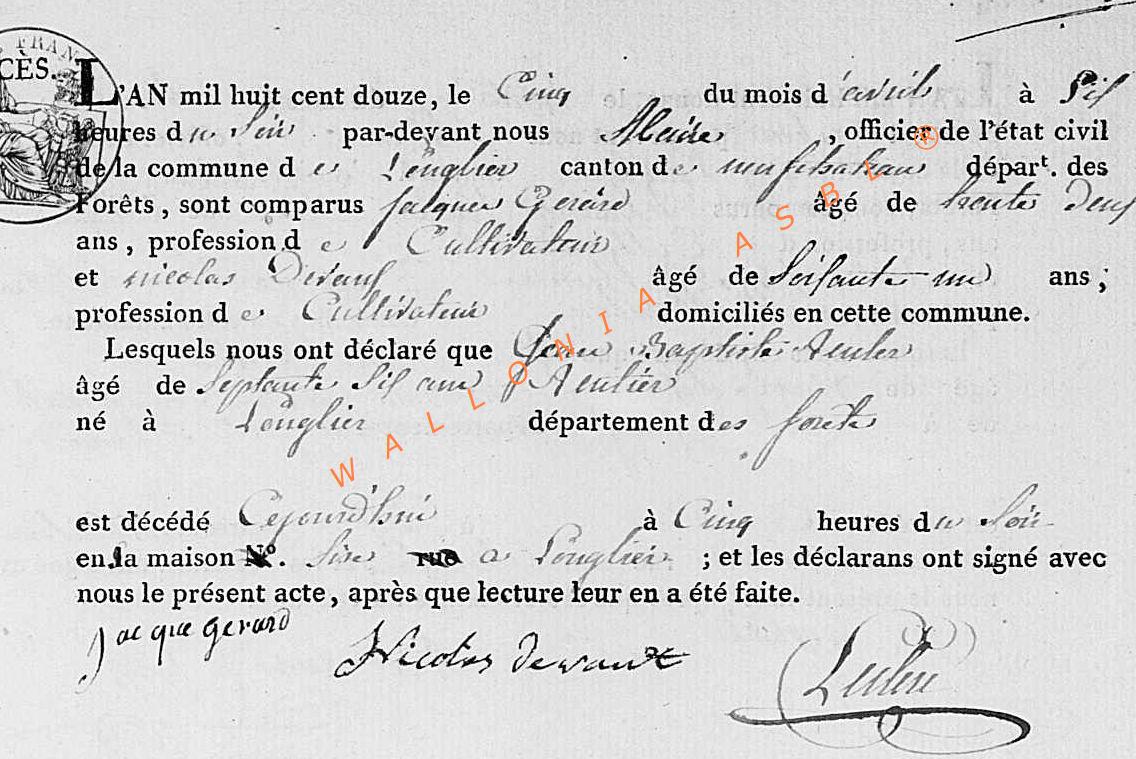 FRAN
CÈS.
L'AN mil huit cent douze, le Cinq du mois d'avril à Six
heures du Soir par-devant nous Maire, officier de l'état civil
de la commune de Longlier canton de neufchateau départ. des
Forêts, sont comparus Jacques Gerard âgé de trente deux
ans, profession de Cultivateur
et nicolas Devaux âgé de Soixante un ans;
profession de Cultivateur domiciliés en cette commune.
Lesquels nous ont déclaré que Jean Baptiste
âgé de Septante Six ans Rentier
né à Longlier département des forets
est décédé Cejourd'hui à Cinq heures du Soir
en la maison N°. Sise rue a Longlier; et les déclarans ont signé avec
nous le présent acte, après que lecture leur en a été faite.
Jacque gerard Nicolas dewaux
WALLONIA ASBL ®